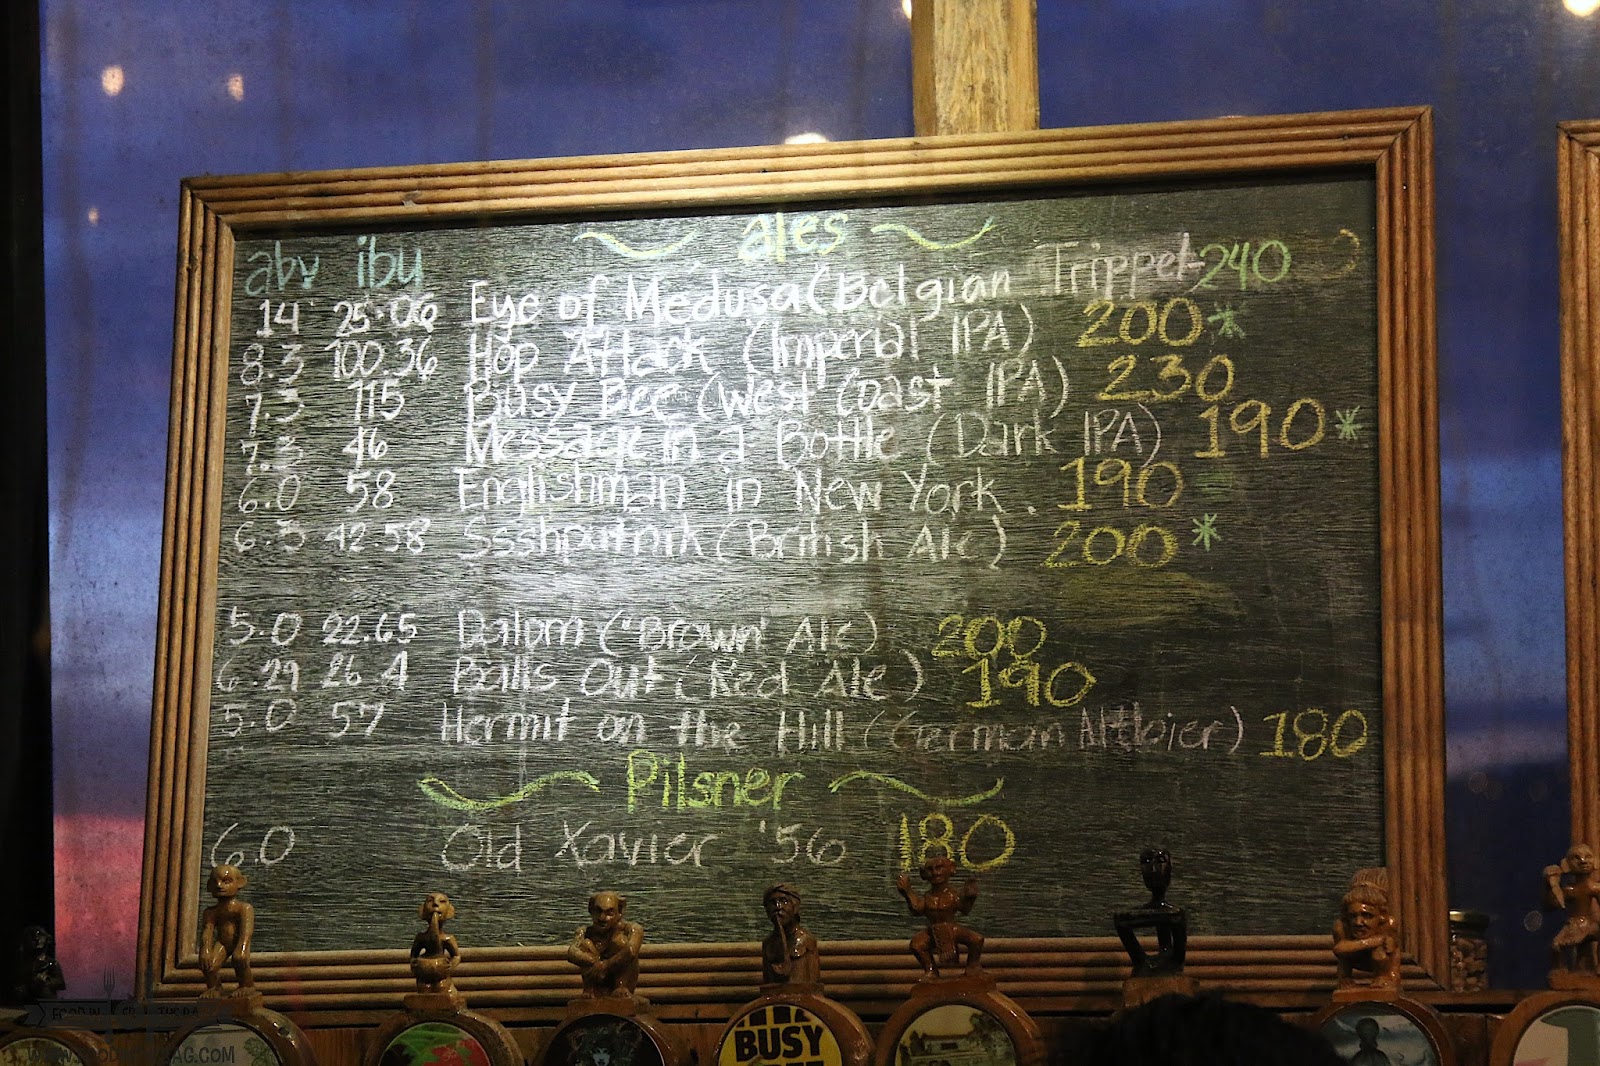 ~ ales ~
abv ibu
14 25.06 Eye of Medusa (Belgian Trippel- 240
8.3 100.36 Hop Attack (Imperial IPA) 200*
7.3 115 Busy Bee (West Coast IPA) 230
7.3 46 Message in a Bottle (Dark IPA) 190*
6.0 58 Englishman in New York. 190
6.3 42.58 Ssshputnik (British Ale) 200*
5.0 22.65 (Brown Ale) 200
6.29 26.4 Balls Out (Red Ale) 190
5.0 57 Hermit on the Hill (German Altbier) 180
~ Pilsner ~
6.0 Old Xavier '56 180
BUSY